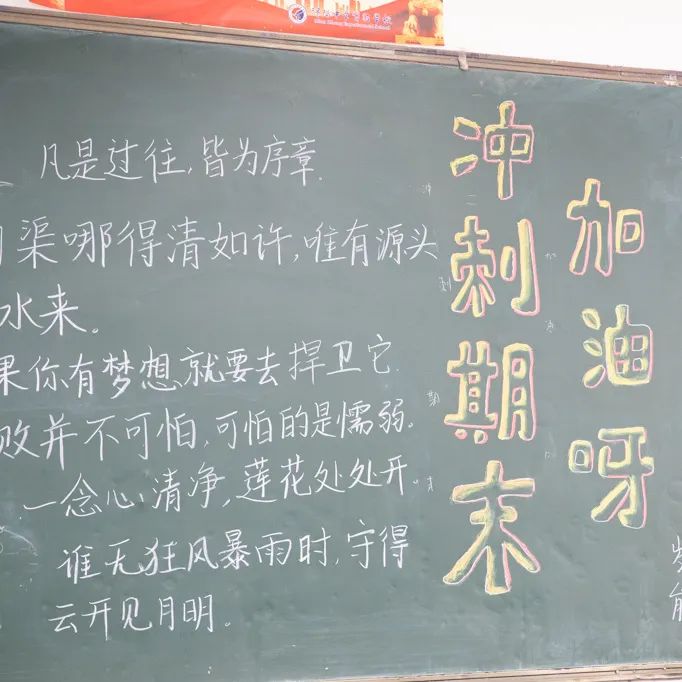 凡是过往,皆为序章.
渠哪得清如许,唯有源头
水来。
果你有梦想,就要去捍卫它.
败并不可怕,可怕的是懦弱。
一念心清净,莲花处处开.
谁无狂风暴雨时,守得
云开见月明。
冲刺期末
加油呀